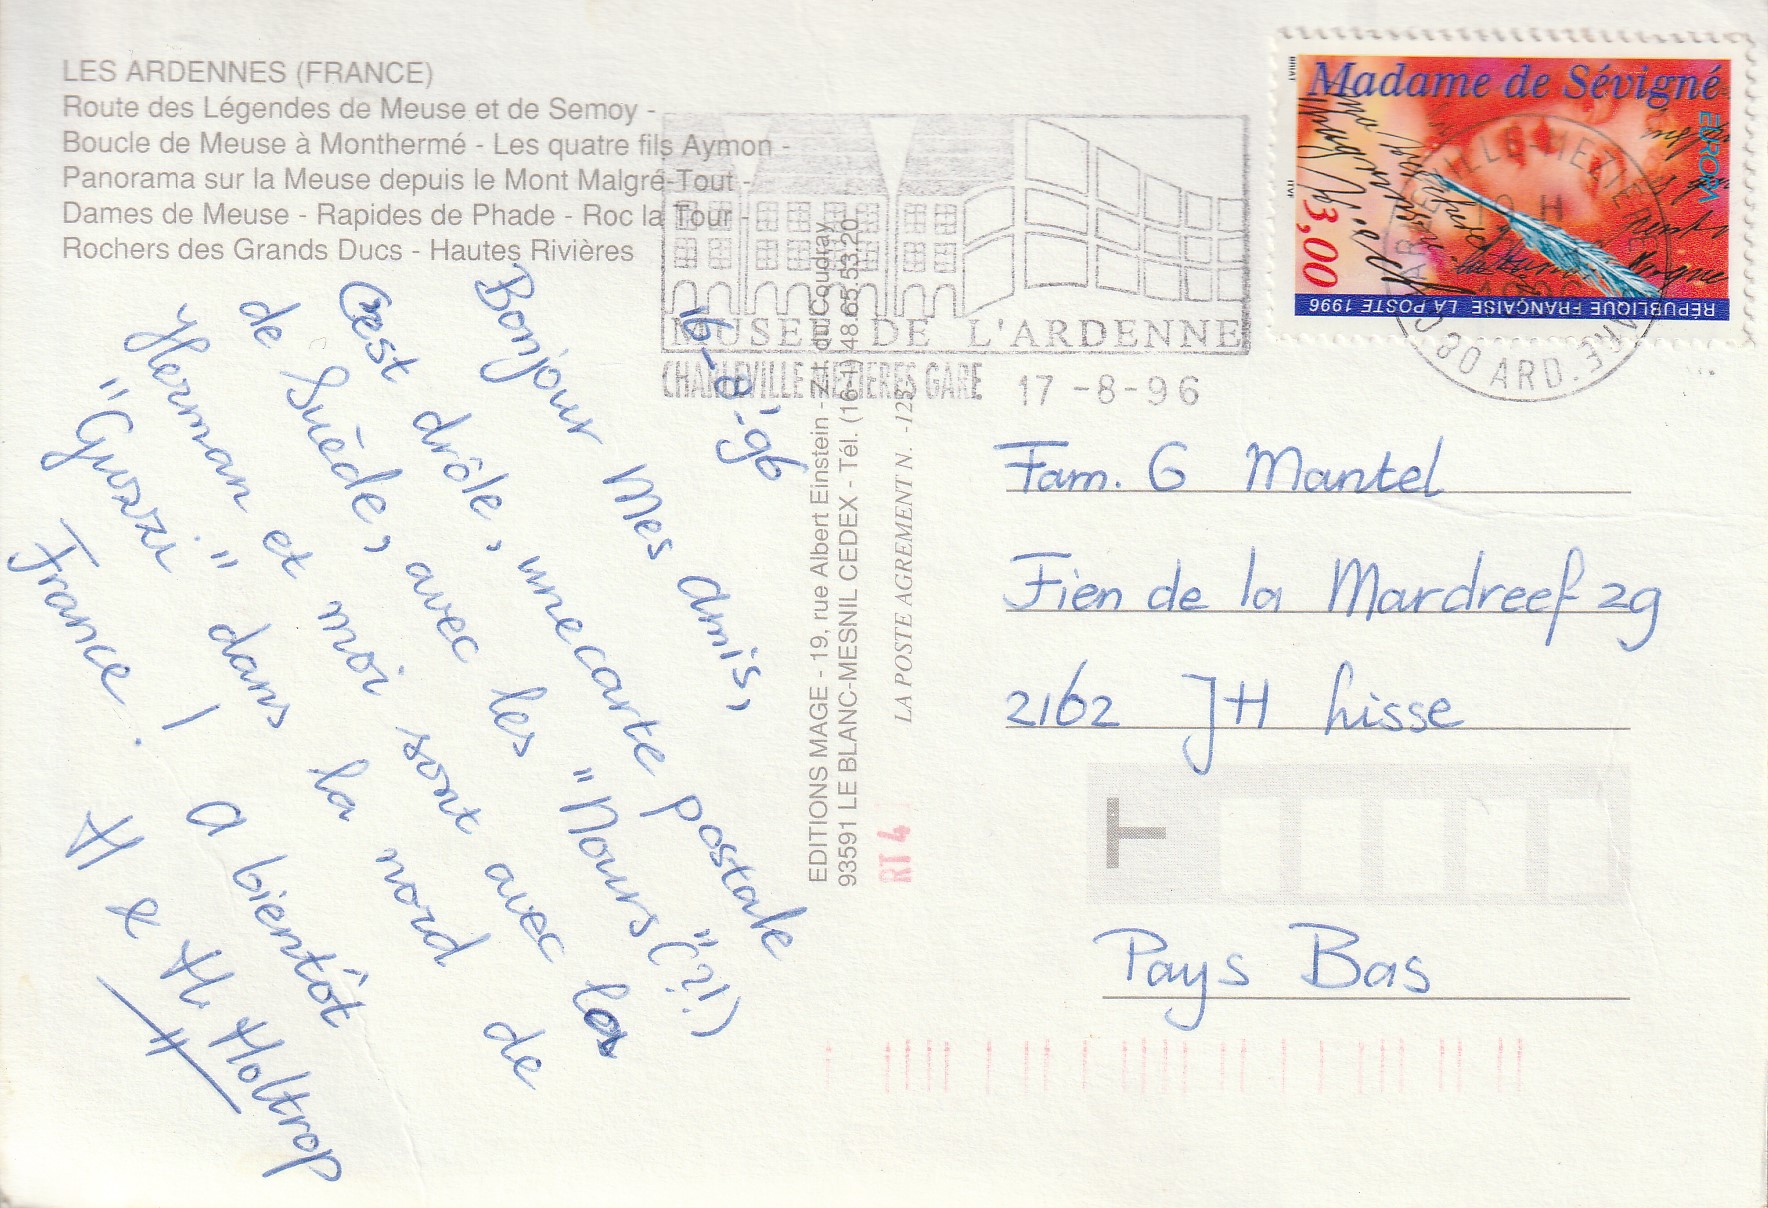 LES ARDENNES (FRANCE)
Route des Légendes de Meuse et de Semoy -
Boucle de Meuse à Monthermé - Les quatre fils Aymon -
Panorama sur la Meuse depuis le Mont Malgré-Tout -
Dames de Meuse - Rapides de Phade - Roc la Tour -
Rochers des Grands Ducs - Hautes Rivières
16-8-'96
Bonjour Mes Amis,
C'est drôle, une carte postale
de Suède, avec les "Nours" (?!)
Herman et moi sont avec la
"Guzzi" dans la nord de
France! A bientôt
H & H. Holtrop
EDITIONS MAGE - 19, rue Albert Einstein - Z.I. du Coudray
93591 LE BLANC-MESNIL CEDEX - Tél. (16-1) 48.65.53.20
LA POSTE AGREMENT N. -125-
RT 4
MUSEE DE L'ARDENNE
CHARLEVILLE MEZIERES GARE 17-8-96
Madame de Sévigné
EUROPA
3,00
RÉPUBLIQUE FRANÇAISE LA POSTE 1996
08 ARD.
Fam. G Mantel
Fien de la Mardreef 29
2162 JH Lisse
T
Pays Bas